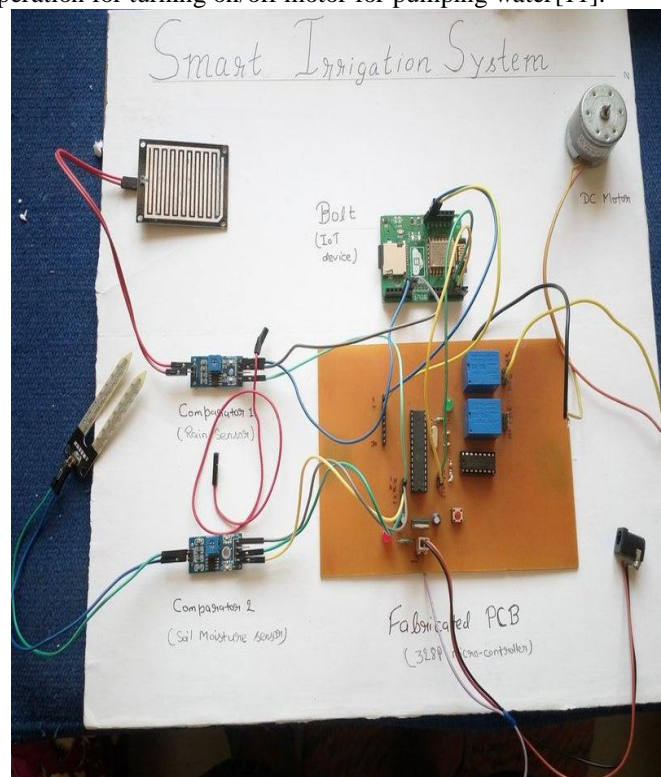 peration for turning on/off motor for pumping water[11].
Smart Irrigation System
DC Motor
Bolt
(IoT
device)
Comparator 1
(Rain Sensor)
Comparator 2
(Soil Moisture sensor)
Fabricated PCB
(328P micro-controller)